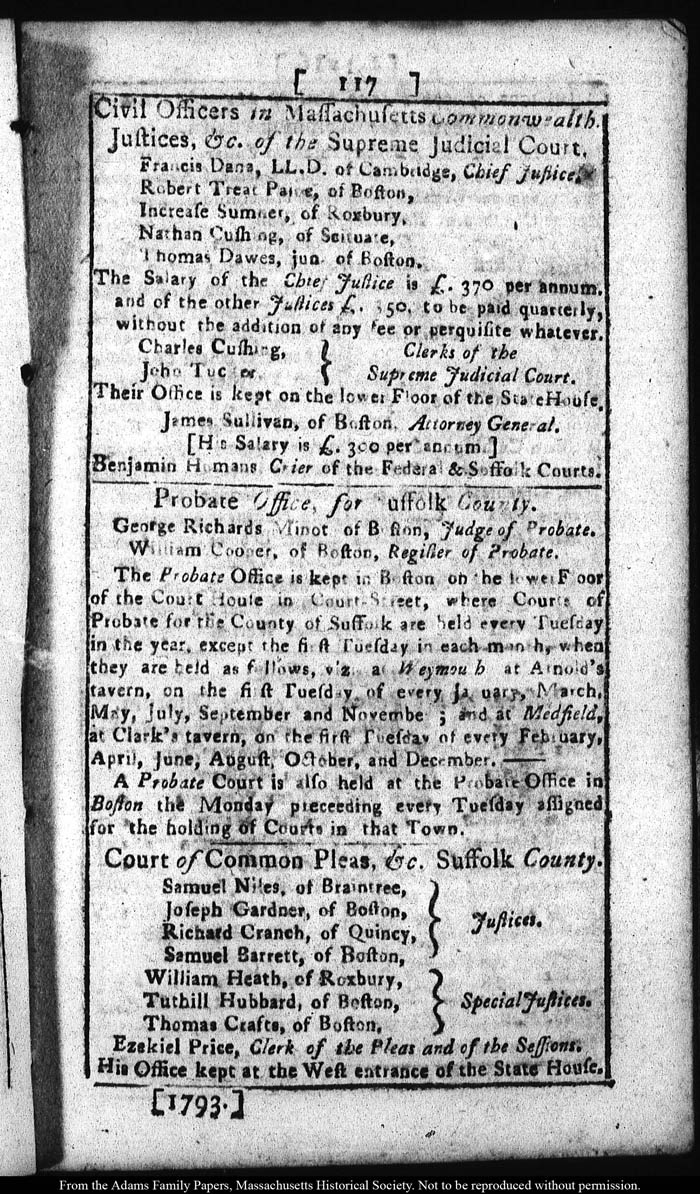 [ 117 ]
Civil Officers in Maſſachuſetts Commonwealth.
Juſtices, &c. of the Supreme Judicial Court.
Francis Dana, LL.D. of Cambridge, Chief Juſtice.
Robert Treat Paine, of Boſton,
Increaſe Sumner, of Roxbury,
Nathan Cuſhing, of Scituate,
Thomas Dawes, jun. of Boſton.
The Salary of the Chief Juſtice is £. 370 per annum.
and of the other Juſtices £. 350. to be paid quarterly,
without the addition of any fee or perquiſite whatever.
Charles Cuſhing, } Clerks of the
John Tucker. { Supreme Judicial Court.
Their Office is kept on the lower Floor of the State Houſe.
James Sullivan, of Boſton, Attorney General.
[His Salary is £. 300 per annum.]
Benjamin Homans Crier of the Federal & Suffolk Courts.
Probate Office, for Suffolk County.
George Richards Minot of Boſton, Judge of Probate.
William Cooper, of Boſton, Regiſter of Probate.
The Probate Office is kept in Boſton on the lower Floor
of the Court Houſe in Court-Street, where Courts of
Probate for the County of Suffolk are held every Tueſday
in the year, except the firſt Tueſday in each month, when
they are held as follows, viz. at Weymouth at Arnold's
tavern, on the firſt Tueſday of every January, March,
May, July, September and November ; and at Medfield,
at Clark's tavern, on the firſt Tueſday of every February,
April, June, Auguſt, October, and December. ——
A Probate Court is alſo held at the Probate Office in
Boſton the Monday preceeding every Tueſday aſſigned
for the holding of Courts in that Town.
Court of Common Pleas, &c. Suffolk County.
Samuel Niles, of Braintree,
Joſeph Gardner, of Boſton,
Richard Cranch, of Quincy, } Juſtices.
Samuel Barrett, of Boſton,
William Heath, of Roxbury,
Tuthill Hubbard, of Boſton, } Special Juſtices.
Thomas Crafts, of Boſton,
Ezekiel Price, Clerk of the Pleas and of the Seſſions.
His Office kept at the Weſt entrance of the State Houſe.
[1793.]
From the Adams Family Papers, Massachusetts Historical Society. Not to be reproduced without permission.